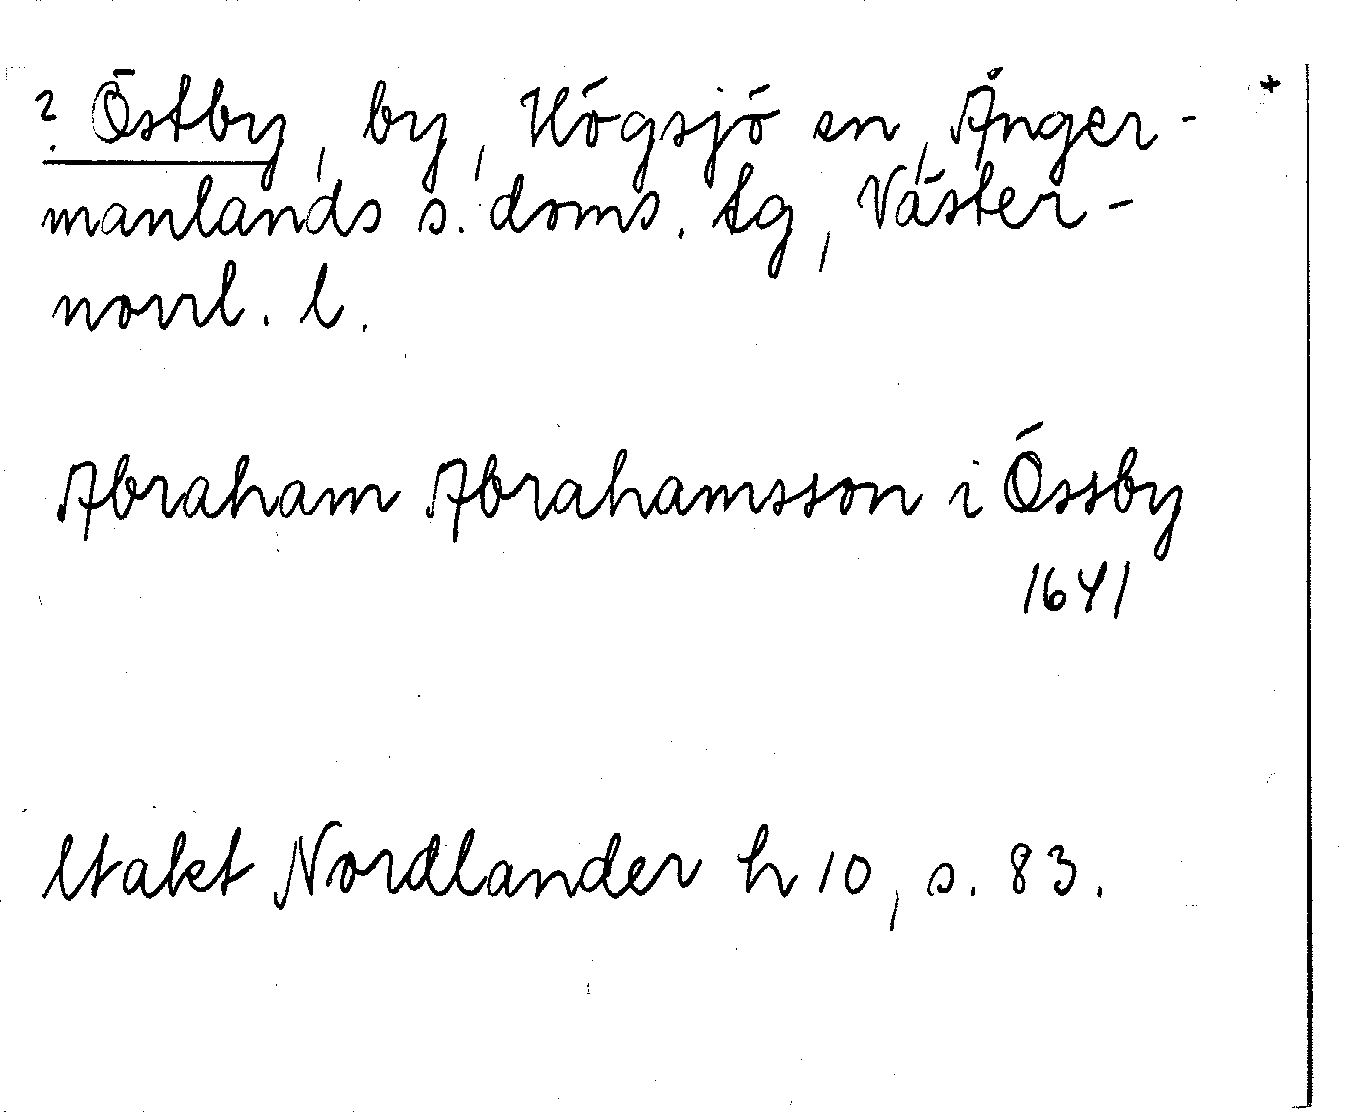 ? Östby, by, Högsjö sn, Ånger- +
manlands s. doms. tg, Väster-
norrl. l.
Abraham Abrahamsson i Össby
1641
Utakt Nordlander h 10, s. 83.